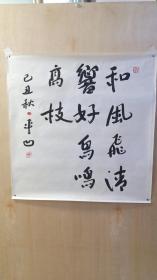 和風飛清
響好鳥鳴
高枝
己丑秋平凹